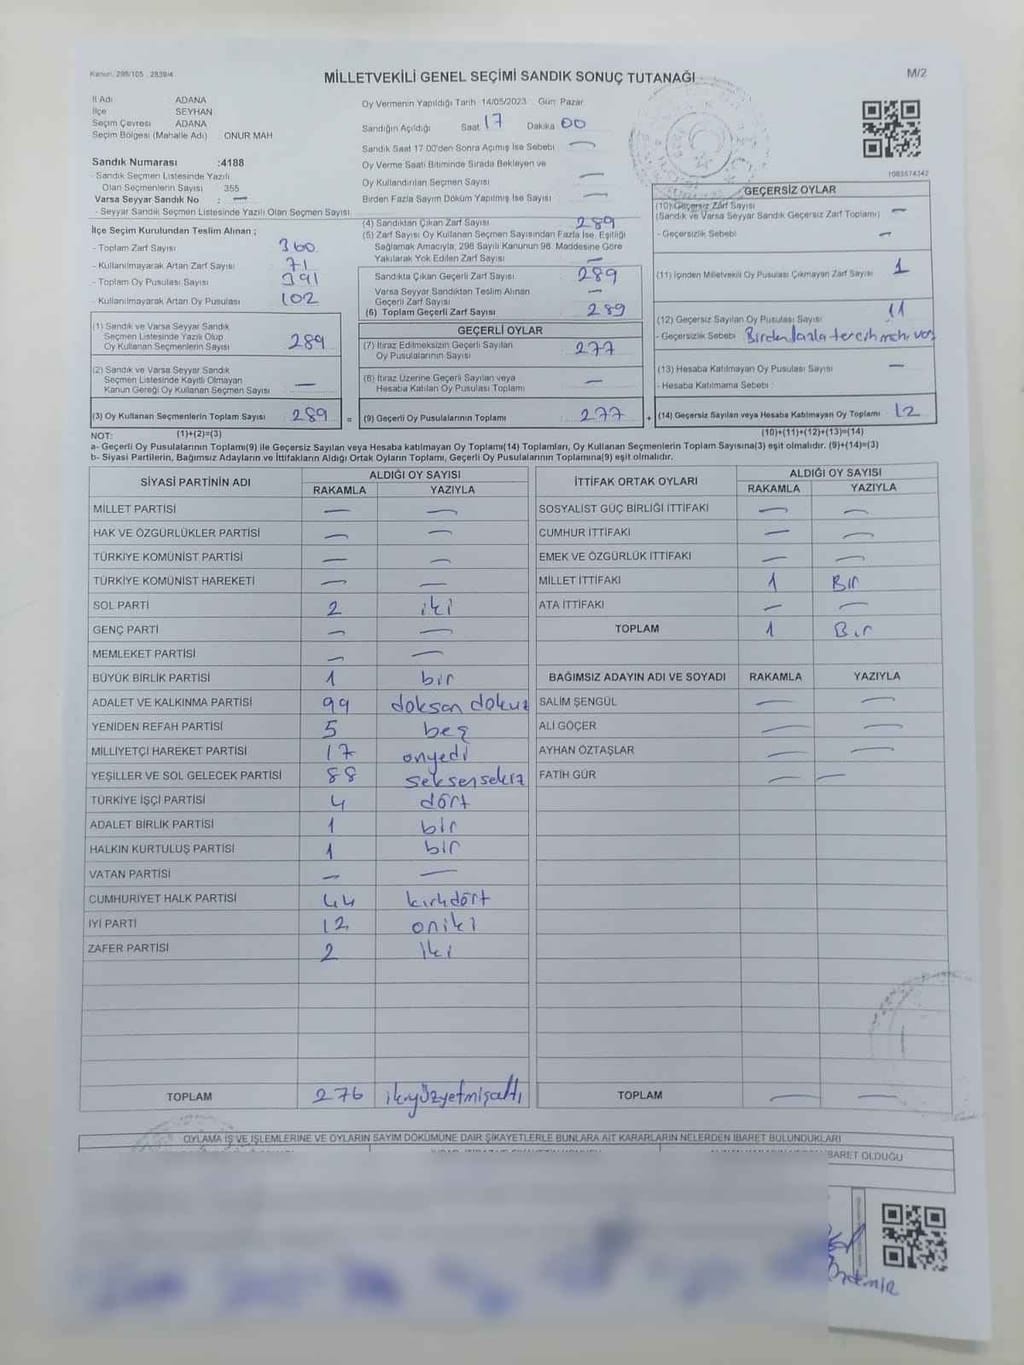 Kanun: 298/105 . 2839/4
MİLLETVEKİLİ GENEL SEÇİMİ SANDIK SONUÇ TUTANAĞI
M/2
İl Adı ADANA
İlçe SEYHAN
Seçim Çevresi ADANA
Seçim Bölgesi (Mahalle Adı) ONUR MAH
Sandık Numarası :4188
- Sandık Seçmen Listesinde Yazılı
Olan Seçmenlerin Sayısı 355
Varsa Seyyar Sandık No : —
- Seyyar Sandık Seçmen Listesinde Yazılı Olan Seçmen Sayısı
İlçe Seçim Kurulundan Teslim Alınan ;
- Toplam Zarf Sayısı 360
- Kullanılmayarak Artan Zarf Sayısı 71
- Toplam Oy Pusulası Sayısı 391
- Kullanılmayarak Artan Oy Pusulası 102
(1) Sandık ve Varsa Seyyar Sandık
Seçmen Listesinde Yazılı Olup
Oy Kullanan Seçmenlerin Sayısı 289
(2) Sandık ve Varsa Seyyar Sandık
Seçmen Listesinde Kayıtlı Olmayan
Kanun Gereği Oy Kullanan Seçmen Sayısı —
(3) Oy Kullanan Seçmenlerin Toplam Sayısı 289 =
Oy Vermenin Yapıldığı Tarih 14/05/2023 Gün Pazar
Sandığın Açıldığı Saat 17 Dakika 00
Sandık Saat 17.00'den Sonra Açılmış İse Sebebi —
Oy Verme Saati Bitiminde Sırada Bekleyen ve
Oy Kullandırılan Seçmen Sayısı —
Birden Fazla Sayım Döküm Yapılmış İse Sayısı —
(4) Sandıktan Çıkan Zarf Sayısı 289
(5) Zarf Sayısı Oy Kullanan Seçmen Sayısından Fazla İse, Eşitliği
Sağlamak Amacıyla, 298 Sayılı Kanunun 98. Maddesine Göre
Yakılarak Yok Edilen Zarf Sayısı —
Sandıkta Çıkan Geçerli Zarf Sayısı 289
Varsa Seyyar Sandıktan Teslim Alınan
Geçerli Zarf Sayısı —
(6) Toplam Geçerli Zarf Sayısı 289
GEÇERLİ OYLAR
(7) İtiraz Edilmeksizin Geçerli Sayılan
Oy Pusulalarının Sayısı 277
(8) İtiraz Üzerine Geçerli Sayılan veya
Hesaba Katılan Oy Pusulası Toplamı —
(9) Geçerli Oy Pusulalarının Toplamı 277 +
1083674342
GEÇERSİZ OYLAR
(10) Geçersiz Zarf Sayısı
(Sandık ve Varsa Seyyar Sandık Geçersiz Zarf Toplamı) —
- Geçersizlik Sebebi —
(11) İçinden Milletvekili Oy Pusulası Çıkmayan Zarf Sayısı 1
(12) Geçersiz Sayılan Oy Pusulası Sayısı 11
- Geçersizlik Sebebi Birden fazla tercih mührü var
(13) Hesaba Katılmayan Oy Pusulası Sayısı —
- Hesaba Katılmama Sebebi
(14) Geçersiz Sayılan veya Hesaba Katılmayan Oy Toplamı 12
NOT: (1)+(2)=(3) (10)+(11)+(12)+(13)=(14)
a- Geçerli Oy Pusulalarının Toplamı(9) ile Geçersiz Sayılan veya Hesaba katılmayan Oy Toplamı(14) Toplamları, Oy Kullanan Seçmenlerin Toplam Sayısına(3) eşit olmalıdır. (9)+(14)=(3)
b- Siyasi Partilerin, Bağımsız Adayların ve İttifakların Aldığı Ortak Oyların Toplamı, Geçerli Oy Pusulalarının Toplamına(9) eşit olmalıdır.
SİYASİ PARTİNİN ADI ALDIĞI OY SAYISI
RAKAMLA YAZIYLA
MİLLET PARTİSİ — —
HAK VE ÖZGÜRLÜKLER PARTİSİ — —
TÜRKİYE KOMÜNİST PARTİSİ — —
TÜRKİYE KOMÜNİST HAREKETİ — —
SOL PARTİ 2 iki
GENÇ PARTİ — —
MEMLEKET PARTİSİ — —
BÜYÜK BİRLİK PARTİSİ 1 bir
ADALET VE KALKINMA PARTİSİ 99 doksan dokuz
YENİDEN REFAH PARTİSİ 5 beş
MİLLİYETÇİ HAREKET PARTİSİ 17 onyedi
YEŞİLLER VE SOL GELECEK PARTİSİ 88 seksensekiz
TÜRKİYE İŞÇİ PARTİSİ 4 dört
ADALET BİRLİK PARTİSİ 1 bir
HALKIN KURTULUŞ PARTİSİ 1 bir
VATAN PARTİSİ — —
CUMHURİYET HALK PARTİSİ 44 kırkdört
İYİ PARTİ 12 oniki
ZAFER PARTİSİ 2 iki
TOPLAM 276 ikiyüzyetmişaltı
İTTİFAK ORTAK OYLARI ALDIĞI OY SAYISI
RAKAMLA YAZIYLA
SOSYALİST GÜÇ BİRLİĞİ İTTİFAKI — —
CUMHUR İTTİFAKI — —
EMEK VE ÖZGÜRLÜK İTTİFAKI — —
MİLLET İTTİFAKI 1 Bir
ATA İTTİFAKI — —
TOPLAM 1 Bir
BAĞIMSIZ ADAYIN ADI VE SOYADI RAKAMLA YAZIYLA
SALİM ŞENGÜL — —
ALİ GÖÇER — —
AYHAN ÖZTAŞLAR — —
FATİH GÜR — —
TOPLAM — —
OYLAMA İŞ VE İŞLEMLERİNE VE OYLARIN SAYIM DÖKÜMÜNE DAİR ŞİKAYETLERLE BUNLARA AİT KARARLARIN NELERDEN İBARET BULUNDUKLARI
İBARET OLDUĞU
Özdemir